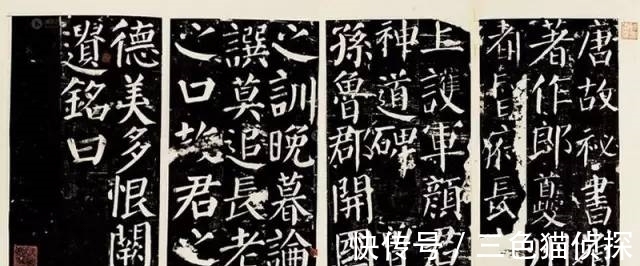 唐故秘書
著作郎夔
都督府長
上護軍顏君
神道碑
孫魯郡開國
之訓晚暮論
譔莫追長老
之口故君之
德美多恨闕
遺銘曰
快传号 / 三色猫侦探